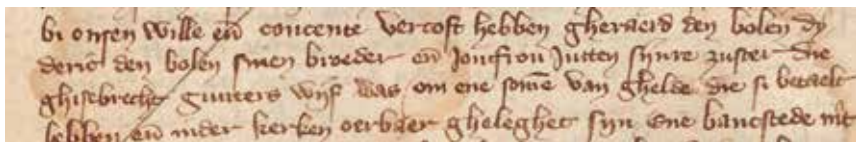 bi onsen wille en̄ concente vercoft hebben gheraerd den bolen dy
deric den bolen sinen broeder en̄ joncfrou jutten synre zuster die
ghisebrecht gunters wijf was om ene som̄e van ghelde die si betaelt
hebben en̄ inder kerken oerbaer gheleghet syn ene bancstede mit